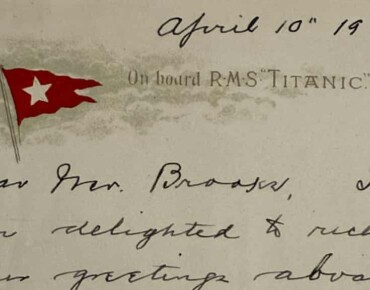 April 10" 19
On board R·M·S "TITANIC."
ar Mr. Brooks,
delighted to
greetings aboa